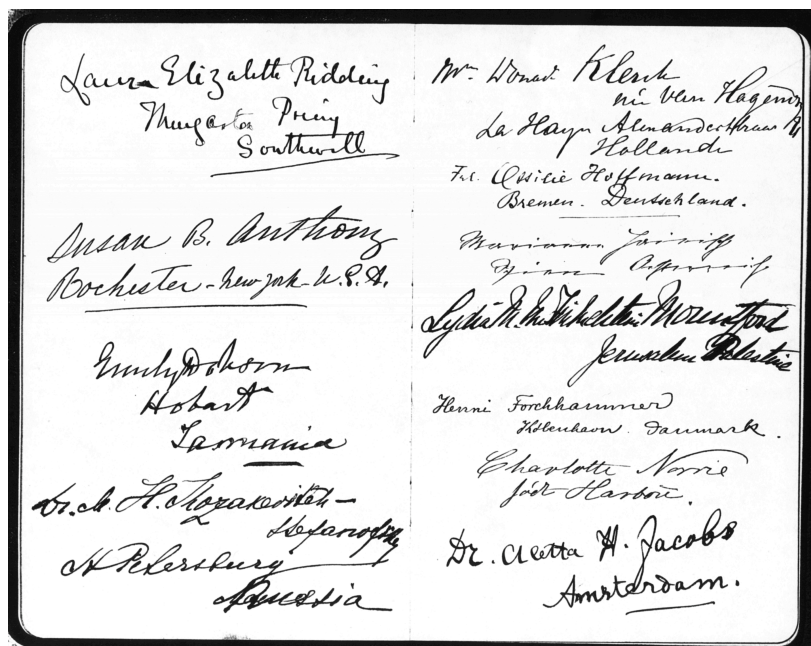 Laura Elizabeth Ridding
Priory
Southwell
Susan B. Anthony
Rochester - New York - U.S.A.
Emily Dobson
Hobart
Tasmania
Dr. M. H. Kozakevitch-
Stefanofsky
St Petersburg
Russia
Klerck
van Hagenn
La Haye Alexanderstraat
Hollande
Frl. Ossilie Hoffmann.
Bremen. Deutschland.
Marianne Hainisch
Wien
Lydia M. Mountford
Jerusalem Palestine
Henni Forchhammer
København. Danmark.
Charlotte Norrie
født Harbou.
Dr. Aletta H. Jacobs
Amsterdam.